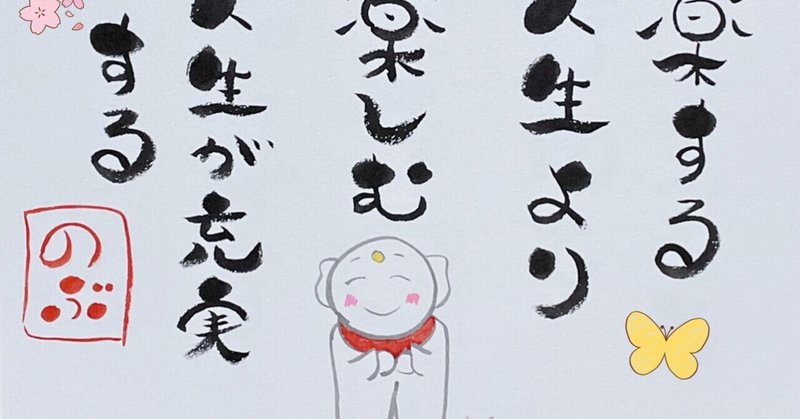 楽する
人生より
楽しむ
人生が充実
する
のぶ